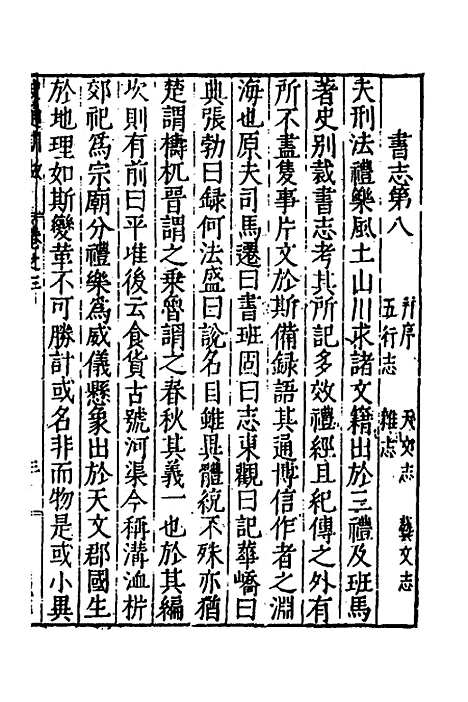 書志第八 并序 天文志 藝文志
五行志 雜志
夫刑法禮樂風土山川求諸文籍出於三禮及班馬
著史別裁書志考其所記多效禮經且紀傳之外有
所不盡隻事片文於斯備録語其通博信作者之淵
海也原夫司馬遷曰書班固曰志東觀曰記華嶠曰
典張勃曰録何法盛曰說名目雖異體統不殊亦猶
楚謂檮杌晉謂之乘魯謂之春秋其義一也於其編
次則有前曰平準後云食貨古號河渠今稱溝洫析
郊祀爲宗廟分禮樂爲威儀懸象出於天文郡國生
於地理如斯變革不可勝計或名非而物是或小異